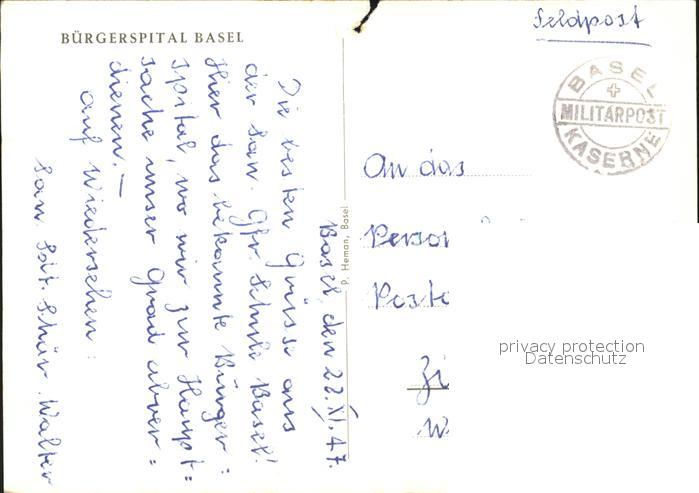 BÜRGERSPITAL BASEL
Feldpost
BASEL
MILITÄRPOST
KASERNE
Basel, den 22. XI. 47.
Die besten Grüsse aus
der San. Gfr. Schule Basel!
Hier das bekannte Bürger:
spital, wo wir zur Haupt=
sache unser Grad abver=
dienen. —
Auf Wiedersehen:
San. Sdt. Schär Walter
P. Heman, Basel
An das
Person
Poste
Zi
W
privacy protection
Datenschutz